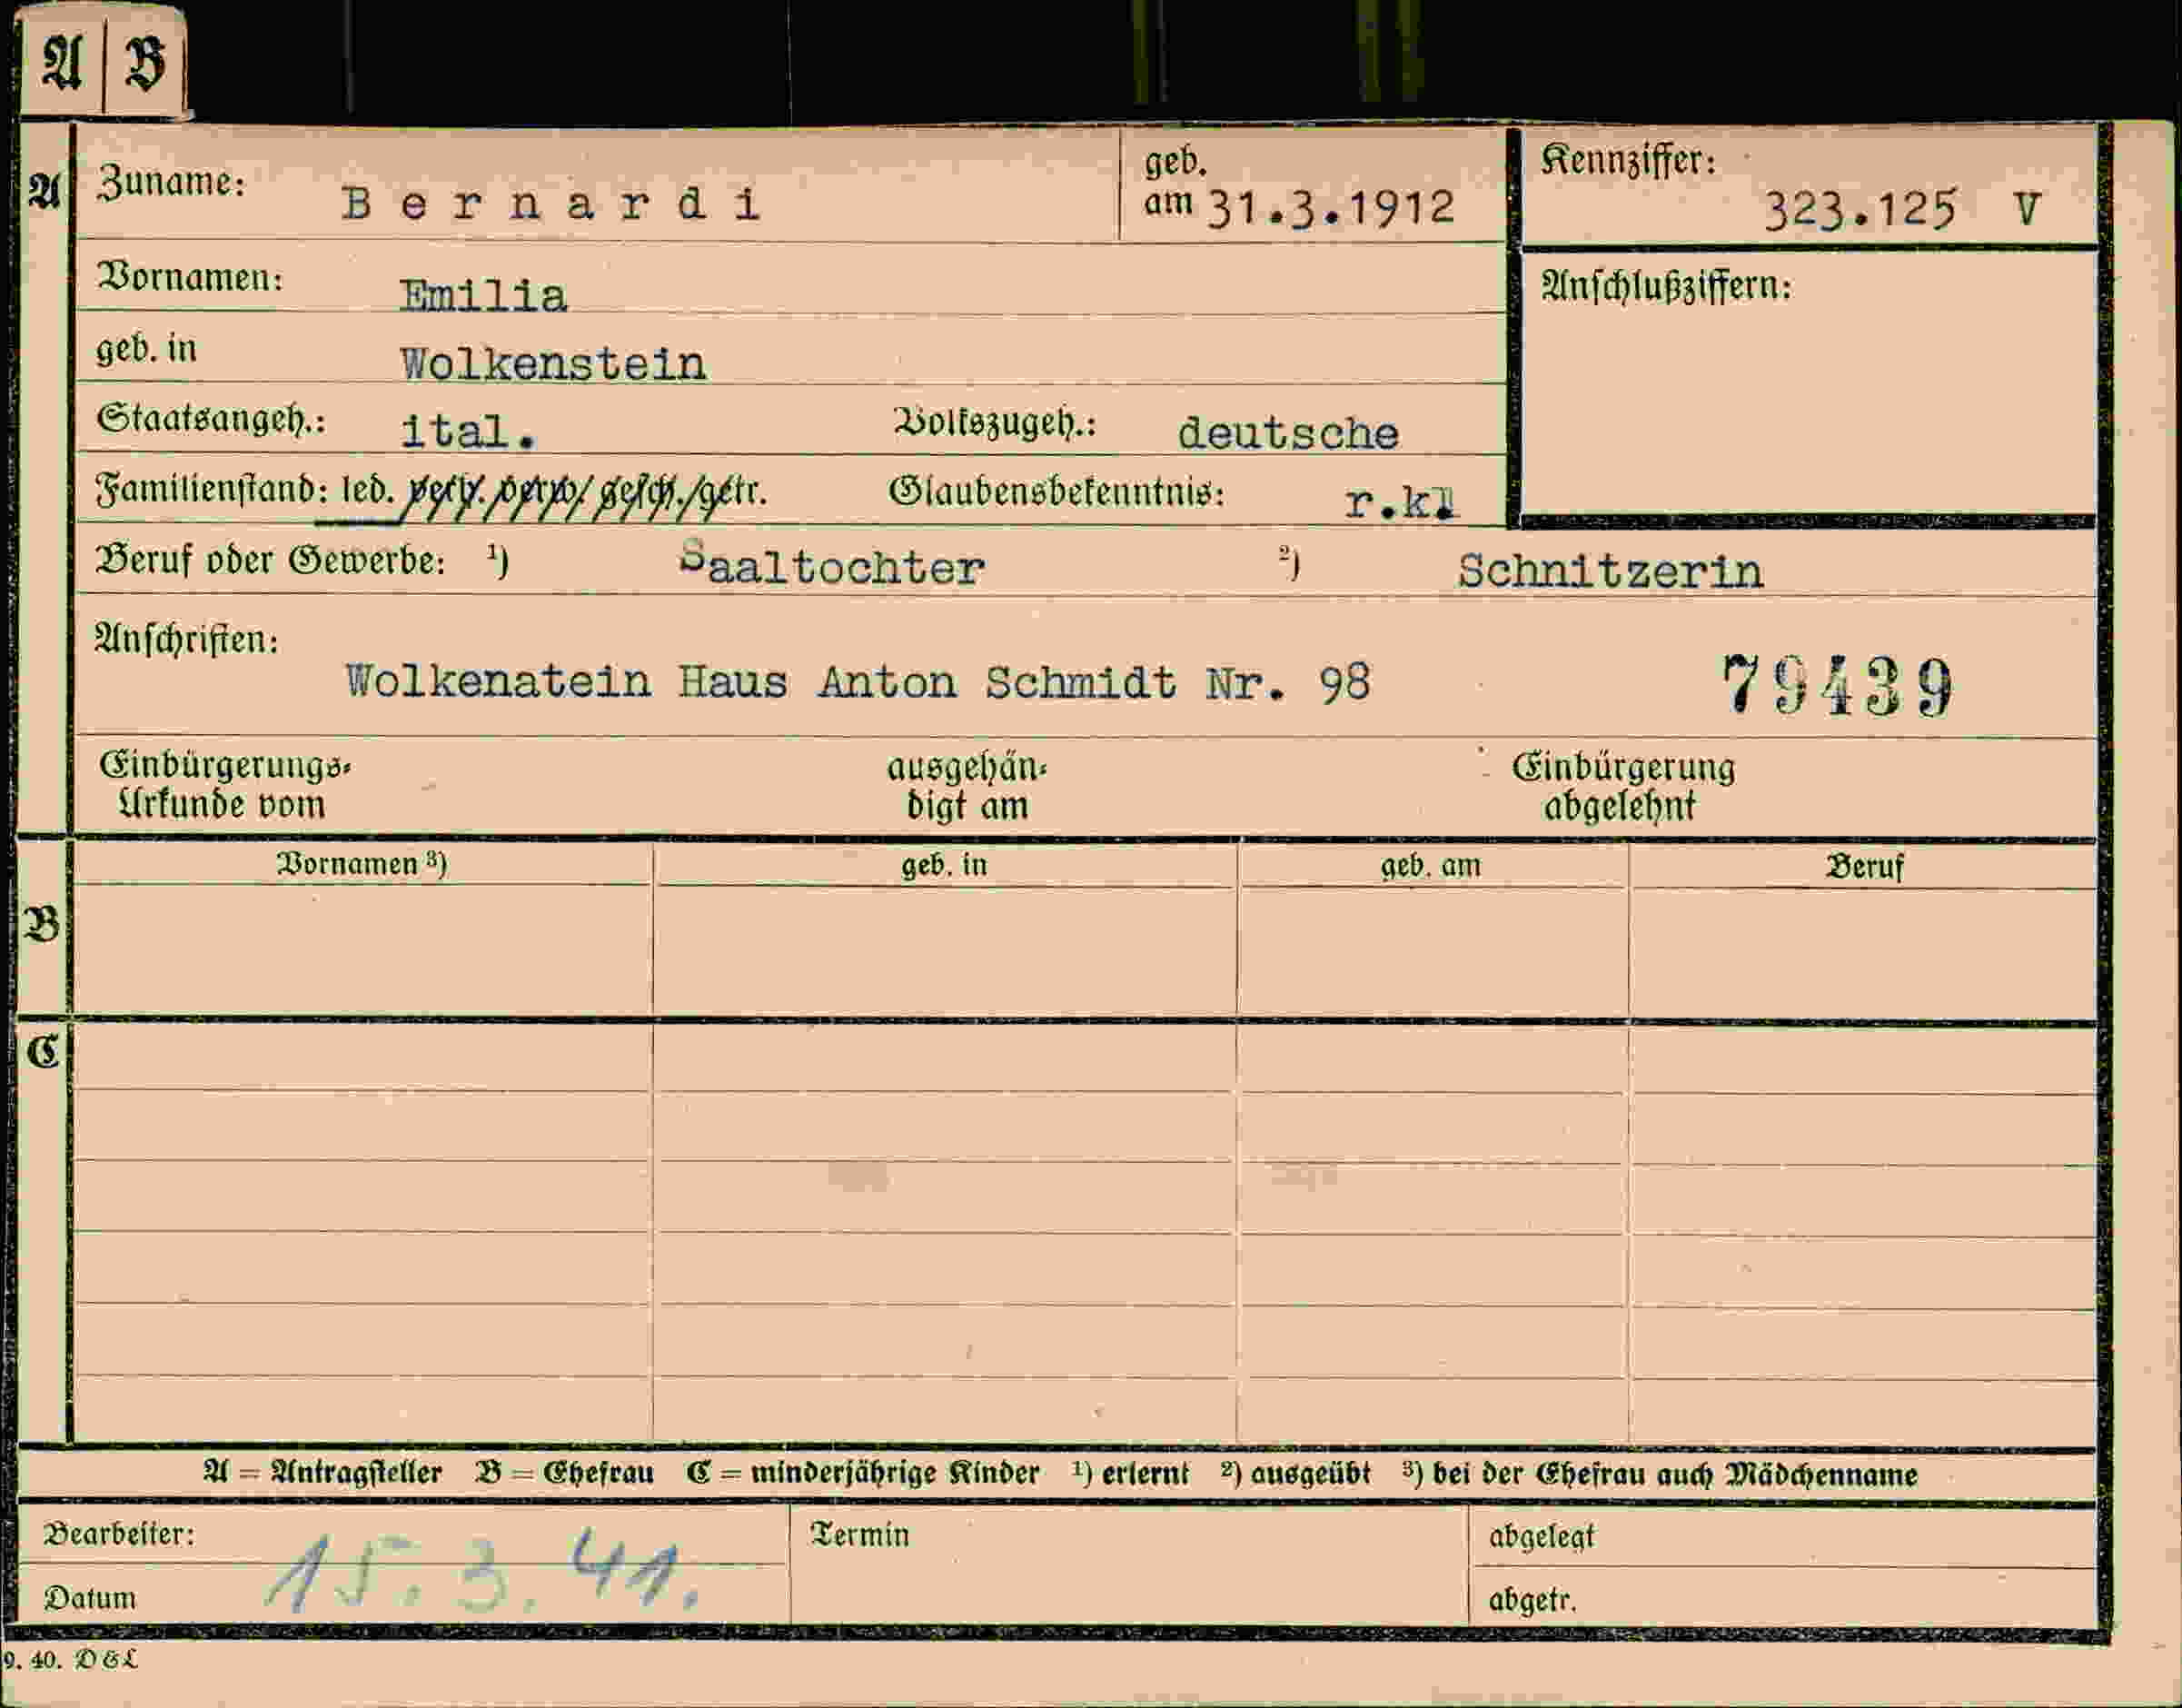 A B
A Zuname: Bernardi geb. am 31.3.1912 Kennziffer: 323.125 V
Vornamen: Emilia Anschlußziffern:
geb. in Wolkenstein
Staatsangeh.: ital. Volkszugeh.: deutsche
Familienstand: led. verh. verw. gesch./getr. Glaubensbekenntnis: r.k.
Beruf oder Gewerbe: ¹) Saaltochter ²) Schnitzerin
Anschriften:
Wolkenatein Haus Anton Schmidt Nr. 98 79439
Einbürgerungs- ausgehän- Einbürgerung
Urkunde vom digt am abgelehnt
Vornamen ³) geb. in geb. am Beruf
B
C
A = Antragsteller B = Ehefrau C = minderjährige Kinder ¹) erlernt ²) ausgeübt ³) bei der Ehefrau auch Mädchenname
Bearbeiter: Termin abgelegt
15.3.41.
Datum abgetr.
9. 40. D&L